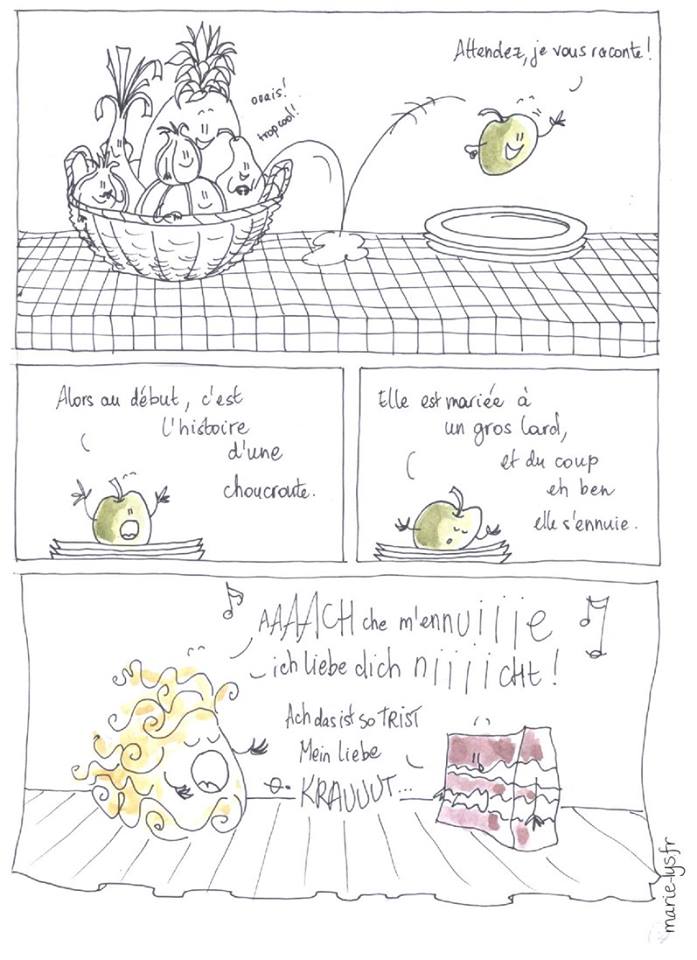 Attendez, je vous raconte!
ouais!
trop cool!
Alors au début, c'est
l'histoire
d'une
choucroute.
Elle est mariée à
un gros lard,
et du coup
eh ben
elle s'ennuie.
AAAACH che m'ennuiiiie
ich liebe dich niiiicht!
Ach das ist so TRIST
Mein liebe
KRAUUUT...
marie-lys.fr